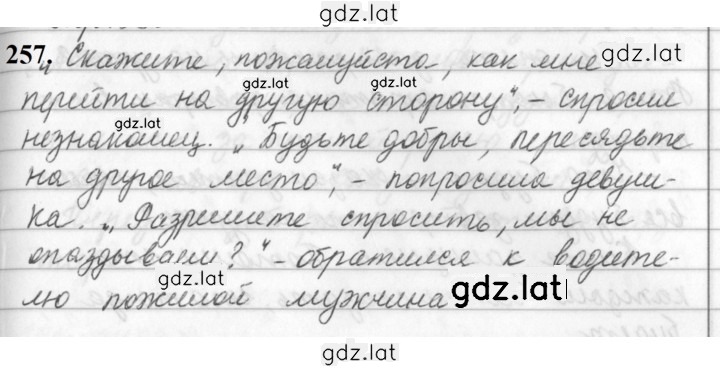 gdz.lat
257. „Скажите, пожалуйста, как мне gdz.lat
gdz.lat gdz.lat
перейти на другую сторону“, – спросил
gdz.lat
незнакомец. „Будьте добры, пересядьте
на другое место“, – попросила девуш-
ка. „Разрешите спросить, мы не
опаздываем?“ – обратился к водите-
gdz.lat
лю пожилой мужчина gdz.lat
gdz.lat